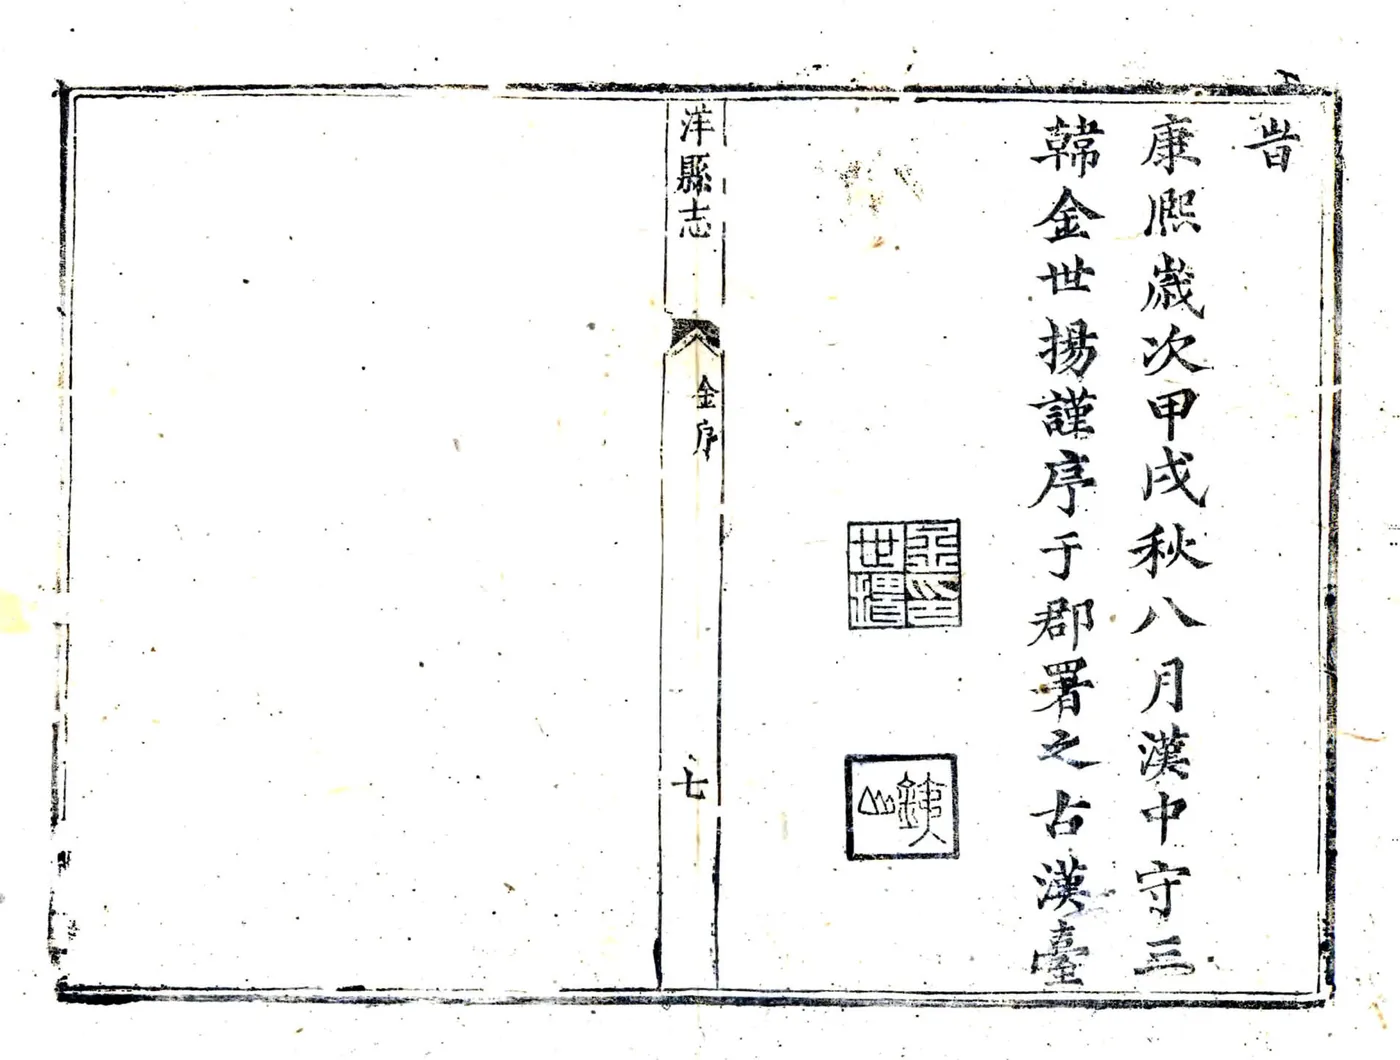 旹
康熙歲次甲戌秋八月漢中守三
韓金世揚謹序于郡署之古漢臺
金印
世揚
銕山
洋縣志
金序
七